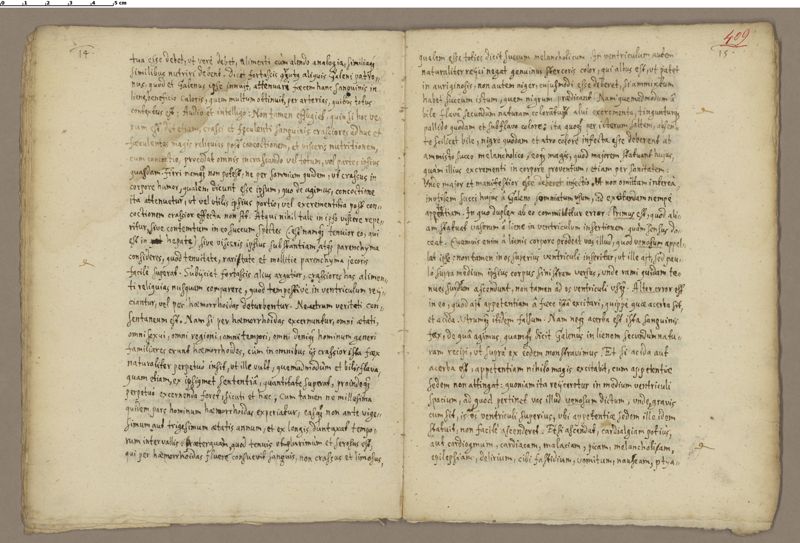 14
tua esse debet, ut vere debet, alimenti cum alendo analogia, similiaq
similibus nutriri debent. Dicet fortassis quispiam aliquis Galeni patro-
nus, quod et Galenus ipse innuit, attenuare faecem hanc sanguinis in
liene, beneficio caloris, quem multum obtinuit, per arterias, quibus totus
contextus est: Audio et intelligo: Non tamen effugies, quin si hoc ve-
rum est
faeculentas magis reliquias post concoctionem, et visceris nutritionem,
cum concoctio, procedat omnis incrassando vel totum, vel partes ipsius
quasdam. Fieri nemque non potest, ne per somnium quidem, ut crassius in
corpore humor, qualem dicunt esse ipsum, quo de agimus, concoctione
ita attenuetur, ut vel utilis ipsius portio, vel excrementitia post con-
coctionem crassior effecta non sit. Atqui nihil tale in ipso viscere repe-
ritur, sive contentum in eo succum spectes (est namque tenuior eo, qui
est in hepate) sive visceris ipsius substantiam atque parenchyma
consideres, quod tenuitate, raritate et mollitie parenchyma jecoris
facile superat. Subjiciat fortassis alius argutior, crassiores has alimen-
ti reliquias nusquam comparere, quod tempestive in ventriculum rej-
ciantur, vel per haemorrhoidas deturbentur. Neutrum veritati con-
sentaneum est. Nam si per haemorrhoidas excernuntur, omni aetati,
omni sexui, omni regioni, omni tempori, omni denique hominum generi
familiares erunt haemorrhoides, cum in omnibus iis crassior ista faex
naturaliter perpetuo insit, ut ille vult, quemadmodum et bilis flava,
quam etiam, ex ipsiusmet sententia, quantitate superat, proindeque
perpetuo excernenda foret, sicuti et haec, Cum tamen ne millesima
quidem pars hominum haemorrhoidas experiatur, easque non ante vige-
simum aut trigesimum aetatis annum, et ex longis duntaxat tempo-
rum intervallis: Praeterquam quod tenuis ut plurimum et serosus est,
qui per haemorrhoidas fluere consuevit sanguis, non crassus et limosus,
409
15
qualem esse toties dicit succum melancholicum. In ventriculum autem
naturaliter rejici negat genuinus stercoris color, qui albus est, ut patet
in auriginosis, non autem niger, cujusmodi esse deberet, si admixtum
haberet succum istum, quem nigrum praedicant. Nam quemadmodum a
bile flava secundum naturam coloratus alvi excrementa, tinguntur,
pallido quodam et subflavo colore, ita quoque per icterum saltem, absen-
te scilicet bile, nigro quodam et atro colore infecta esse deberent ut
ammisto succo melancholico, eoque magis, quo majorem statuunt hujus,
quam illius excrementi in corpore proventum, etiam per sanitatem.
Unde major et manifestior esse deberet infectio. Ut non omittam interea
inutilem succi hujus a Galeno somniatum usum, ad excitandam nempe
appetentiam. In quo duplex ab eo committitur error. Primus est, quod ali-
am statuat vasorum a liene in ventriculum insertionem, quam sensus do-
ceat. Quamvis enim a lienis corpore prodeat vas illud, quod venosum appel-
lat ipse: non tamen in os superius ventriculi inseritur, ut ille ait, sed pau-
lo supra medium ipsius corpus sinistrorsum versus, unde rami quidam te-
nues sursum ascendunt, non tamen ad os ventriculi usque. Alter error est
in eo, quod ait appetentiam a faece ista excitari, quippe quae acerba sit,
et acida. Utrumque itidem falsum. Nam neque acerba est ista sanguinis
faex, de qua agimus, quamque dicit Galenus in lienem secundum natu-
ram recipi, ut supra ex eodem monstravimus. Et si acida aut
acerba esset, appetentiam nihilo magis excitabit, cum appetentiae
sedem non attingat: quoniam ita rejicretur in medium ventriculi
spacium, ad quod pertinet vas illud venosum dictum, unde, gravis
cum sit, in os ventriculi superius, ubi appetentiae sedem ille idem
statuit, non facile ascenderet. Et si ascendat, cardialgiam potius,
aut cardiogmum, cardiacam, malaciam, picam, melancholiam,
epilepsiam, delirium, cibi fastidium, vomitum, nauseam, ptya-